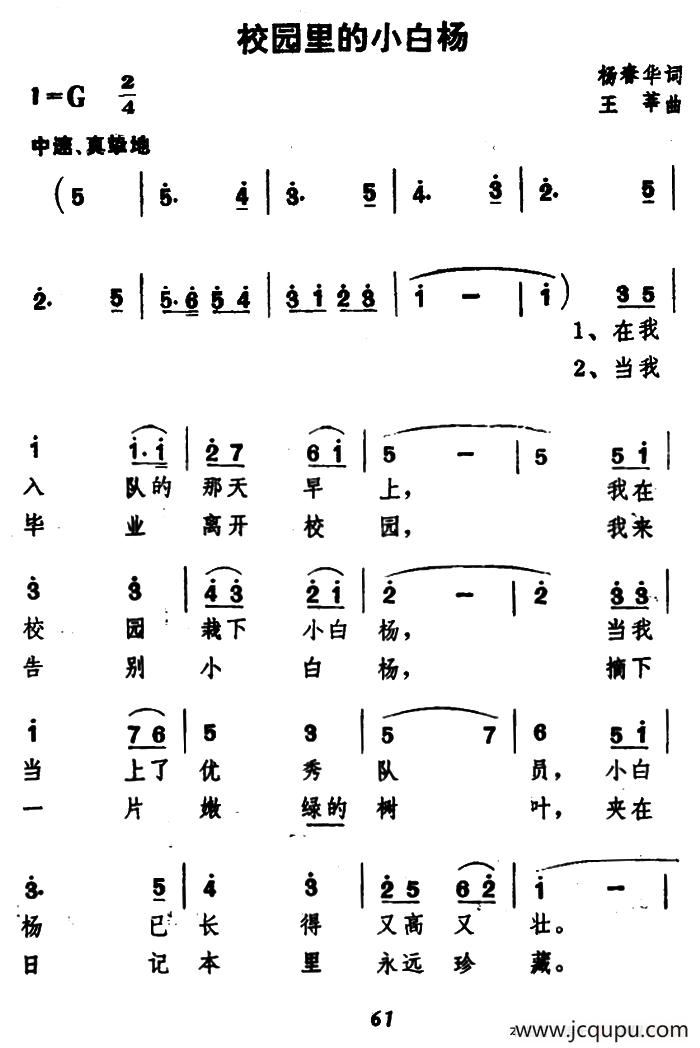 校园里的小白杨
杨春华词
1=G 2/4
王莘曲
中速、真挚地
(5 | 5. 4 | 3. 5 | 4. 3 | 2. 5 |
2. 5 | 5.6 5 4 | 3 1 2 3 | 1 - | 1) 3 5
1、在我
2、当我
1 1.1 | 2 7 6 1 | 5 - | 5 5 1 |
入 队的 那天 早 上, 我在
毕 业 离开 校 园, 我来
3 3 | 4 3 2 1 | 2 - | 2 3 3 |
校 园 栽下 小白 杨, 当我
告 别 小 白 杨, 摘下
1 7 6 | 5 3 | 5 7 | 6 5 1 |
当 上了 优 秀 队 员, 小白
一 片 嫩 绿的 树 叶, 夹在
3. 5 | 4 3 | 2 5 6 2 | 1 - |
杨 已 长 得 又高 又 壮。
日 记 本 里 永远 珍 藏。
61
www.jcqupu.com